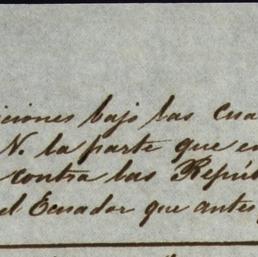 iciones bajo las cua
N. la parte que en
contra las Repúb
el Ecuador que antes